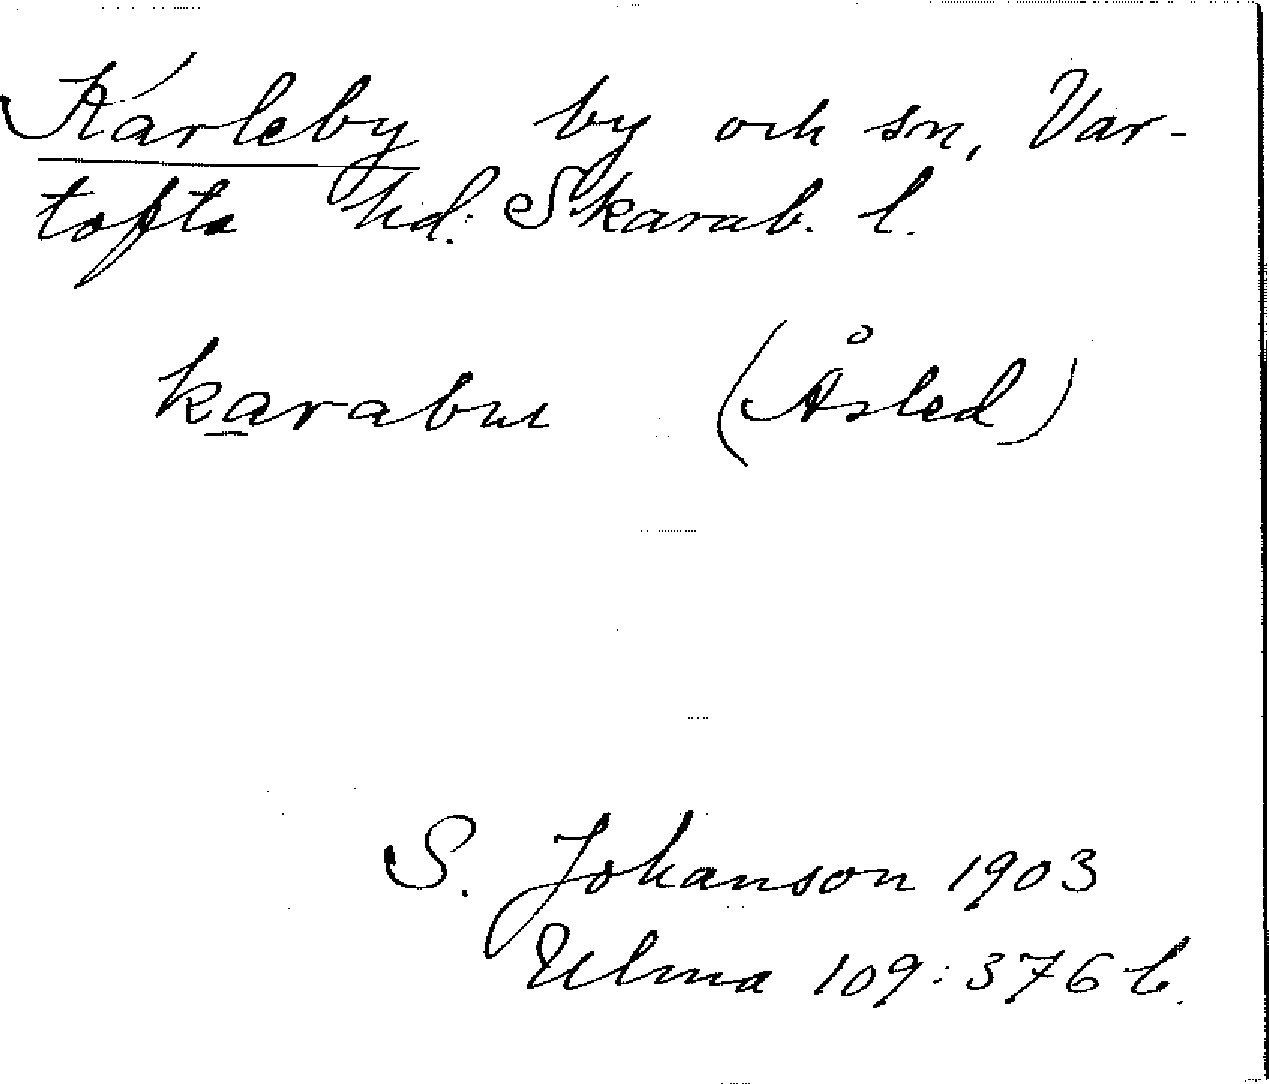 Karleby by och sn, Var-
tofta hd. Skarab. l.
karabu (Åsled)
S. Johanson 1903
Ulma 109:376 b.